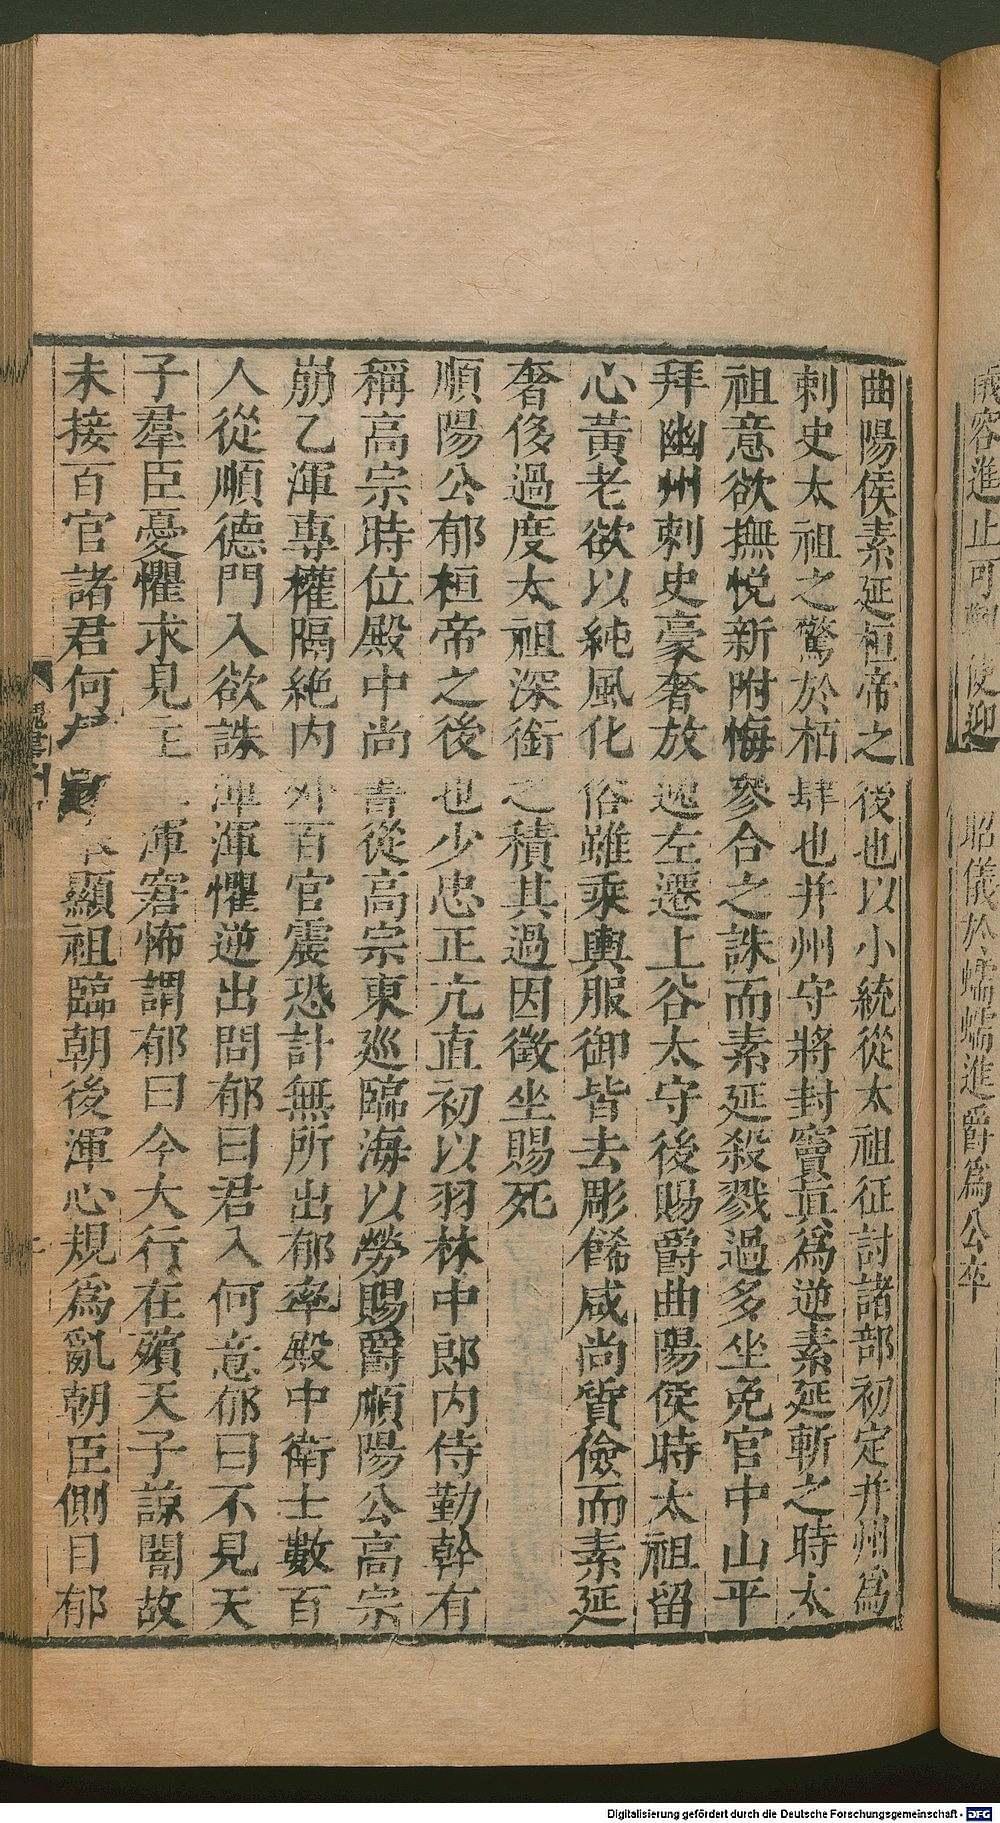 儀容進止可觀使迎
昭儀於蠕蠕進爵爲公卒
曲陽侯素延桓帝之後也以小統從太祖征討諸部初定并州爲
刺史太祖之驚於栢肆也并州守將封竇真爲逆素延斬之時太
祖意欲撫悅新附悔參合之誅而素延殺戮過多坐免官中山平
拜幽州刺史豪奢放逸左遷上谷太守後賜爵曲陽侯時太祖留
心黃老欲以純風化俗雖乘輿服御皆去彫餙咸尚質儉而素延
奢侈過度太祖深銜之積其過因徵坐賜死
順陽公郁桓帝之後也少忠正亢直初以羽林中郎內侍勤幹有
稱高宗時位殿中尚書從高宗東巡臨海以勞賜爵順陽公高宗
崩乙渾專權隔絶內外百官震恐計無所出郁率殿中衛士數百
人從順德門入欲誅渾渾懼逆出問郁曰君入何意郁曰不見天
子羣臣憂懼求見主渾窘怖謂郁曰今大行在殯天子諒闇故
未接百官諸君何顯祖臨朝後渾心規爲亂朝臣側目郁
魏書列
Digitalisierung gefördert durch die Deutsche Forschungsgemeinschaft - DFG